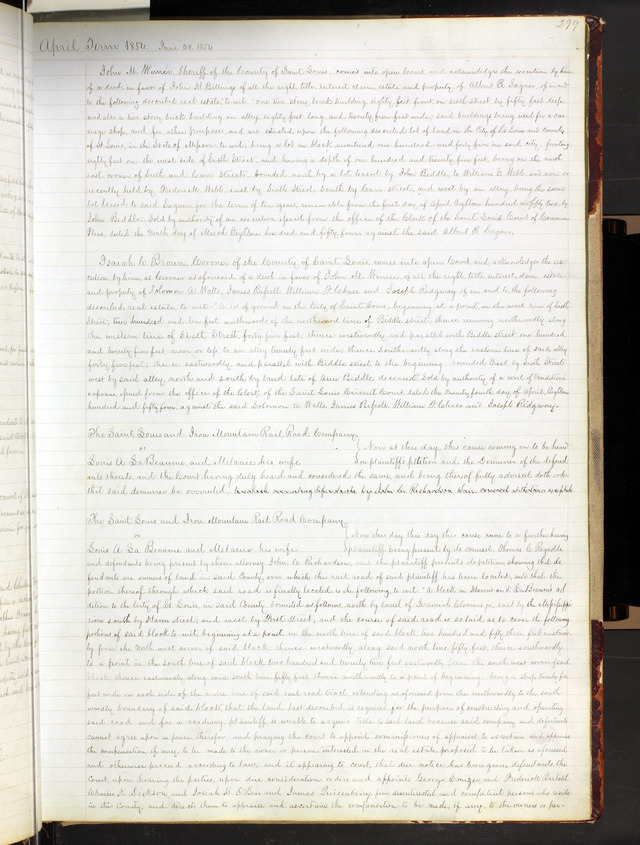 299
April Term 1854. June 28, 1854
John M. Wimer, Sheriff of the County of Saint Louis, comes into open Court and acknowledges the execution by him
of a deed, in favor of John H. Billings of all the right, title, interest, claim, estate and property of Albert R. of, in and
to the following described real estate, to wit: one two story brick building, eighty feet front, on Sixth Street by fifty feet deep
and also a two story brick building on alley, eighty feet long, and twenty five feet wide; said buildings being used for a
shop, and for other purposes, and are situated upon the following described lot of land in the City of St Louis and County
of St Louis, in the State of Missouri to wit: being a lot in block numbered one hundred and forty five in said city, fronting
eighty feet on the west side of Sixth Street, and having a depth of one hundred and twenty five feet, being on the north
west corner of Sixth and streets, bounded north by a lot leased by John Biddle, to William G. Webb, and now or
recently held by Frederick Webb, east by Sixth Street, South by street, and west by an alley, being the same
lot leased to said for the term of ten years, renewable from the first day of April Eighteen hundred and fifty two, by
John Biddle: Sold by authority of an execution issued from the office of the Clerk of the Saint Louis Court of Common
Pleas, dated the day of March Eighteen hundred and fifty four, against the said Albert R.
Isaiah C. Brown, Coroner of the County of Saint Louis comes into open Court, and acknowledges the exe-
cution, by him, as Coroner as aforesaid of a deed in favor of John M. Wimer, of all the right, title, interest, claim, estate
and property of Solomon A. Watts, James William P. Chase and Joseph Ridgway of, in and to the following
described real estate, to wit: "A lot of ground in the City of Saint Louis, beginning at a point in the west line of Sixth
Street, two hundred and ten feet northwards of the northwood line of Biddle street; thence running northwardly along
the western line of Sixth Street forty five feet; thence westwardly and parallel with Biddle street one hundred
and twenty five feet more or less to an alley twenty feet wide; thence Southwardly along the eastern line of said alley
forty five feet; thence eastwardly and parallel with Biddle street to the beginning: bounded East by Sixth Street
west by said alley, north and south by land late of Ann Biddle, deceased: Sold by authority of a writ of Venditioni
exponas issued from the office of the Clerk of the Saint Louis Circuit Court, dated the twenty fourth day of April, Eighteen
hundred and fifty four, against the said Solomon A. Watts, James William P. Chase and Joseph Ridgway.
The Saint Louis and Iron Mountain Rail Road Company,
vs
Now at this day, this cause coming on to be heard
Louis A. LaBeaume and Melanie his wife
on plaintiffs petition and the Demurrer of the defend-
ants thereto, and the Court having duly heard and considered the same, and being thereof fully advised doth order
that said demurrer be overruled,
The Saint Louis and Iron Mountain Rail Road Company,
vs
Now this day this day this cause came to a further hearing
Louis A. La Beaume and Melanie, his wife
plaintiff being present by its counsel, Thomas C. Reynolds
and defendants being present by their attorney John C. Richardson, and the plaintiff presents its petition showing that de-
fendants are owners of land in said County, over which the rail road of said plaintiff has been located, and that the
portion thereof through which said road is finally located is the following, to wit: "A block in and LaBeaume's ad-
dition to the City of St. Louis, in said County, bounded as follows, north by land of Jeremiah Clemens jr, east by the Mississippi
river south by street, and west by First Street, and the course of said road is so laid as to cover the following
portions of said block to wit: beginning at a point on the north line of said block, two hundred and fifty three feet eastward-
ly from the North west corner of said block, thence westwardly along said north line fifty feet, thence southwardly
to a point in the south line of said block two hundred and twenty two feet eastwardly from the south west corner of said
block, thence eastwardly along said south line fifty feet, thence northwardly to a point of beginning; being a strip twenty five
feet wide on each side of the centre line of said rail road tract, extending as aforesaid from the northwardly to the south
wardly boundary of said block, that the land last described is required for the purposes of constructing and operating
said road and for a roadway, plaintiff is unable to acquire title to said land because said company and defendants
cannot agree upon a price therefor, and praying the court to appoint commissioners of appraisal to ascertain and appraise
the compensation, if any, to be made to the owner or persons interested in the real estate proposed to be taken as aforesaid
and otherwise proceed according to law; and it appearing to court, that due notice has been given defendants the
Court, upon hearing the parties, upon due consideration orders and appoints George and Frederick
Charles K. Dickson, and Josiah H. and James five disinterested and competent persons who reside
in this County, and directs them to appraise and ascertain the compensation to be made, if any, to the owners or per-